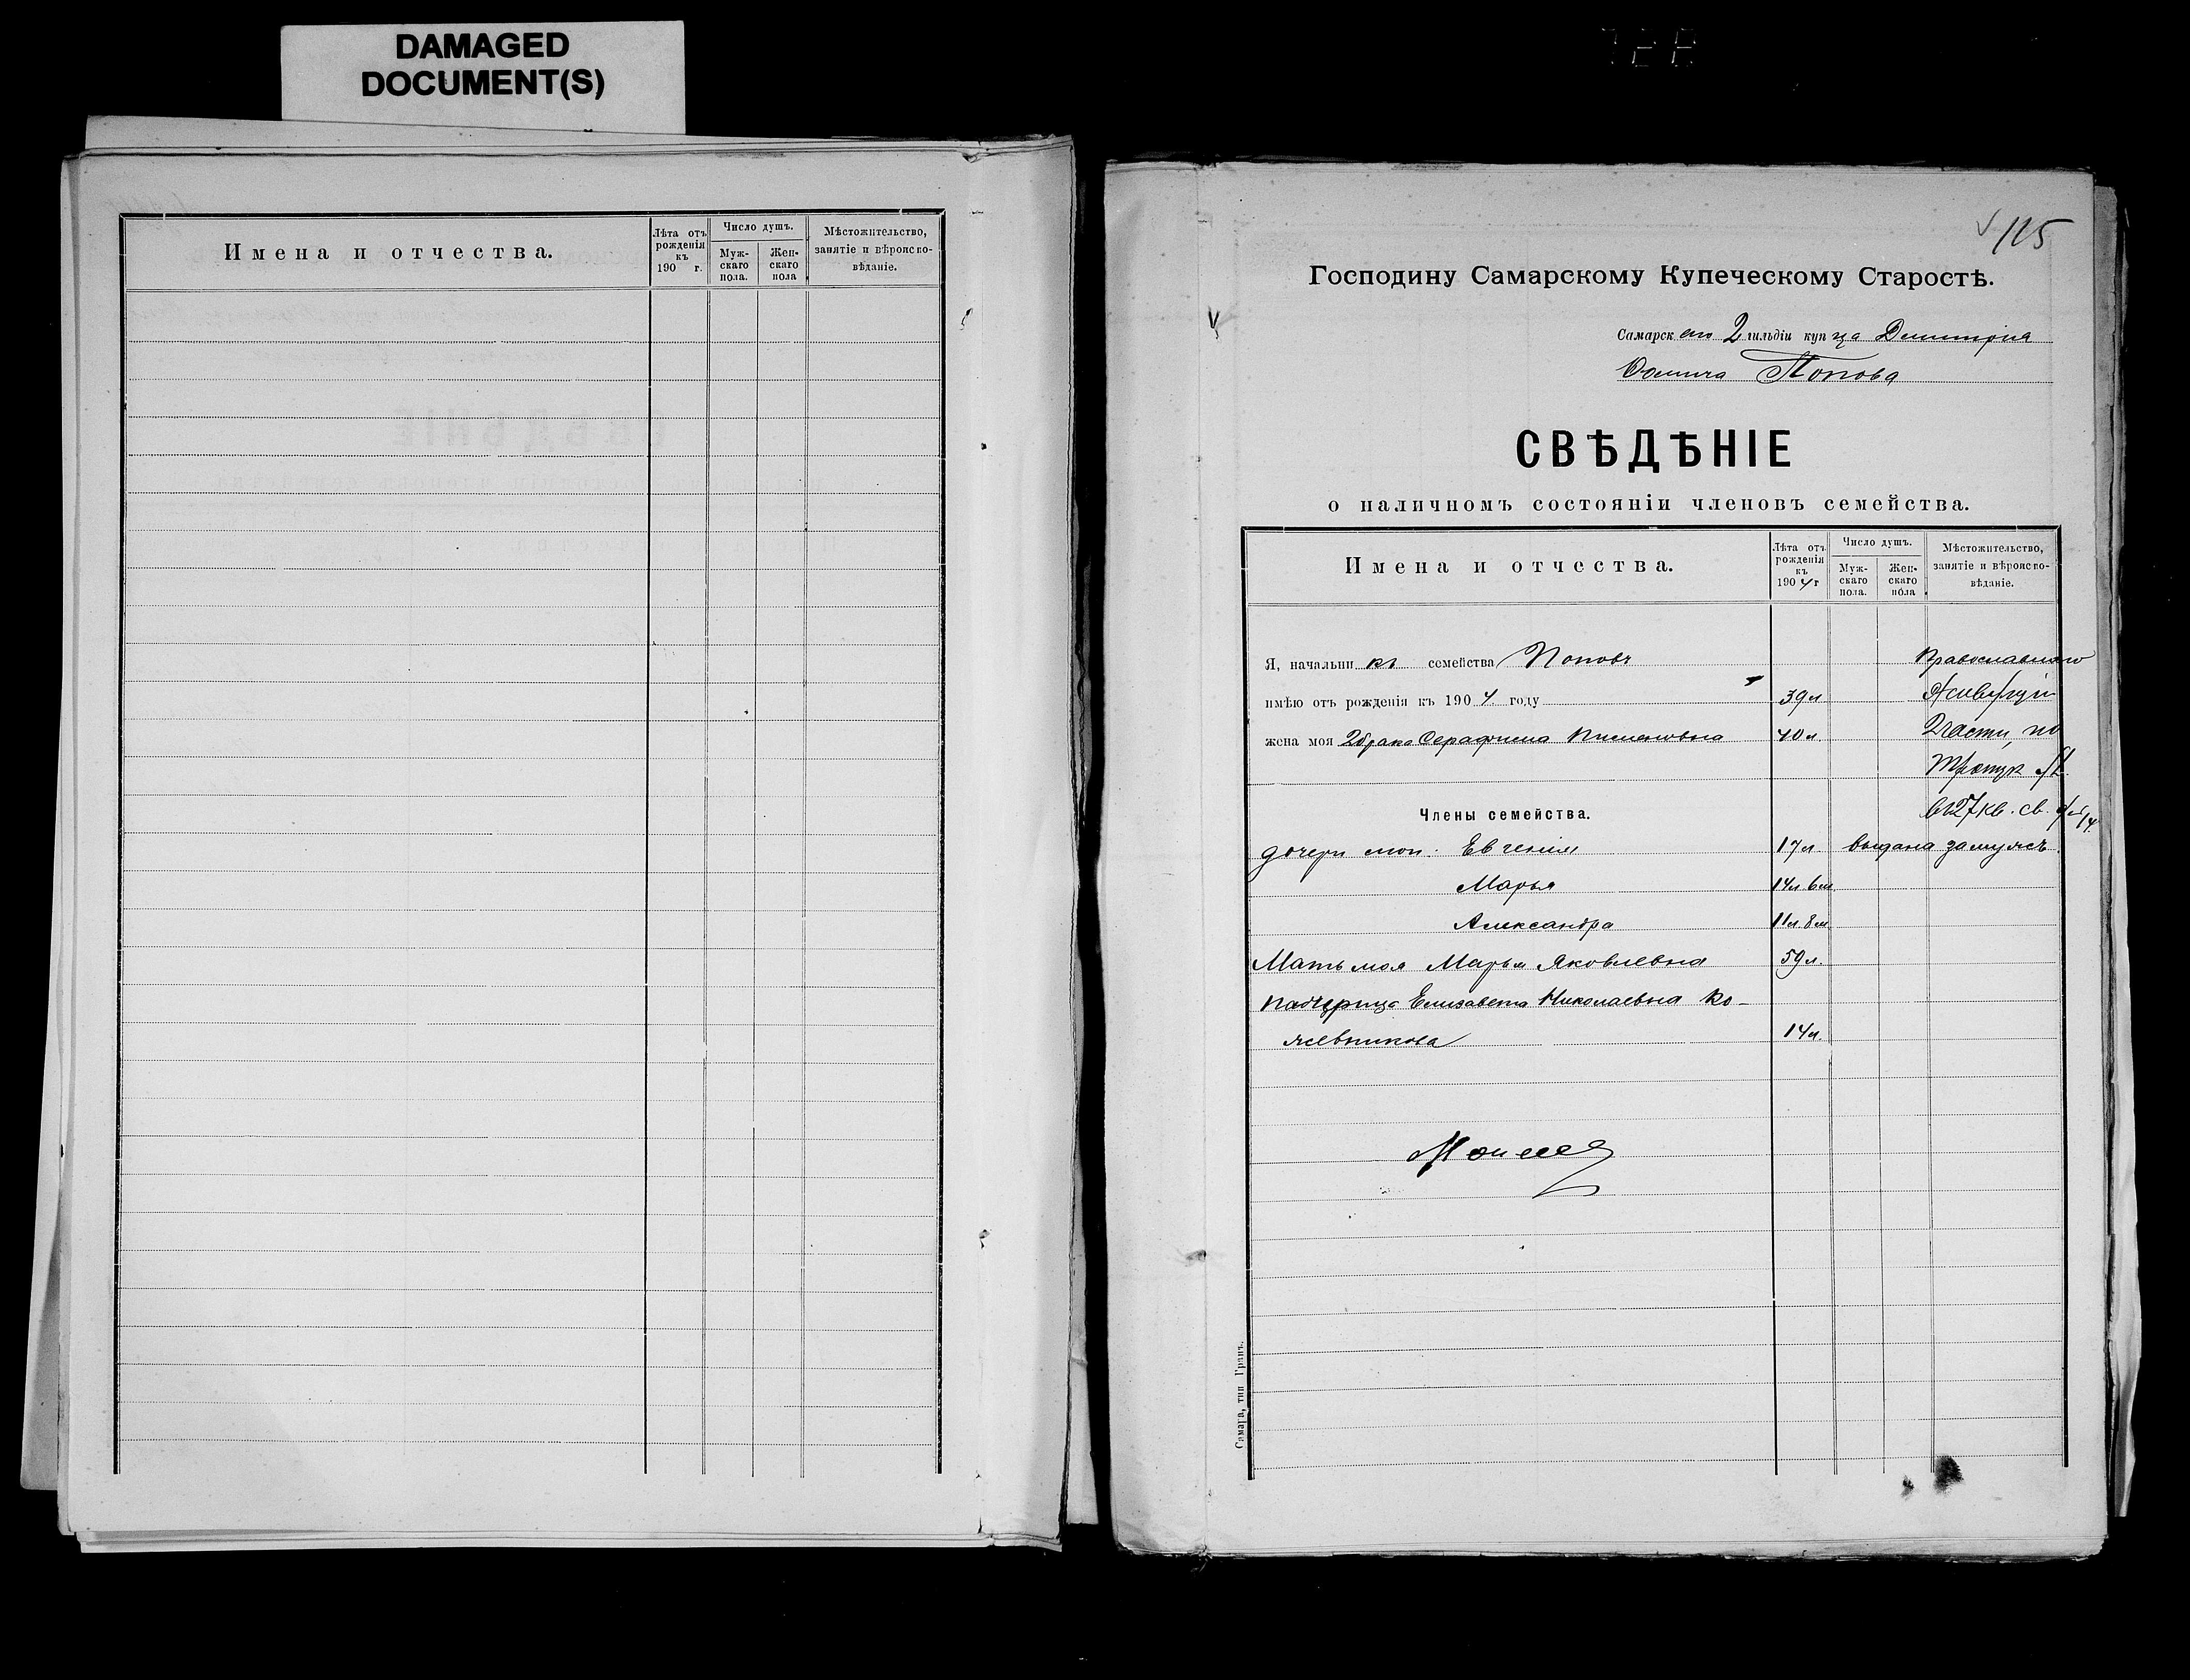 DAMAGED
DOCUMENT(S)
Имена и отчества.
Лѣта отъ рожденія къ 190 г.
Число душъ.
Мужскаго пола.
Женскаго пола
Мѣстожительство, занятіе и вѣроисповѣданіе.
115
Господину Самарскому Купеческому Старостѣ.
Самарскаго 2 гильдіи купца Димитрія
Фомича Попова
СВѢДѢНІЕ
о наличномъ состояніи членовъ семейства.
Имена и отчества.
Лѣта отъ рожденія къ 1904 г
Число душъ.
Мужскаго пола.
Женскаго пола
Мѣстожительство, занятіе и вѣроисповѣданіе.
Я, начальникъ семейства Поповъ Православнаго
имѣю отъ рожденія къ 1904 году 39 л
жена моя 2 брака Серафима Пименовна 40 л. 2 части, по
Члены семейства. въ 27 кв. св.
дочери мои: Евгенія 17 л выдана замужъ
Марья 14 л. 6 м
Александра 11 л. 8 м
Мать моя Марья Яковлевна 59 л.
Падчерица Елизавета Николаевна Ко-
жевникова 14 л.
Самара, тип Гранъ.